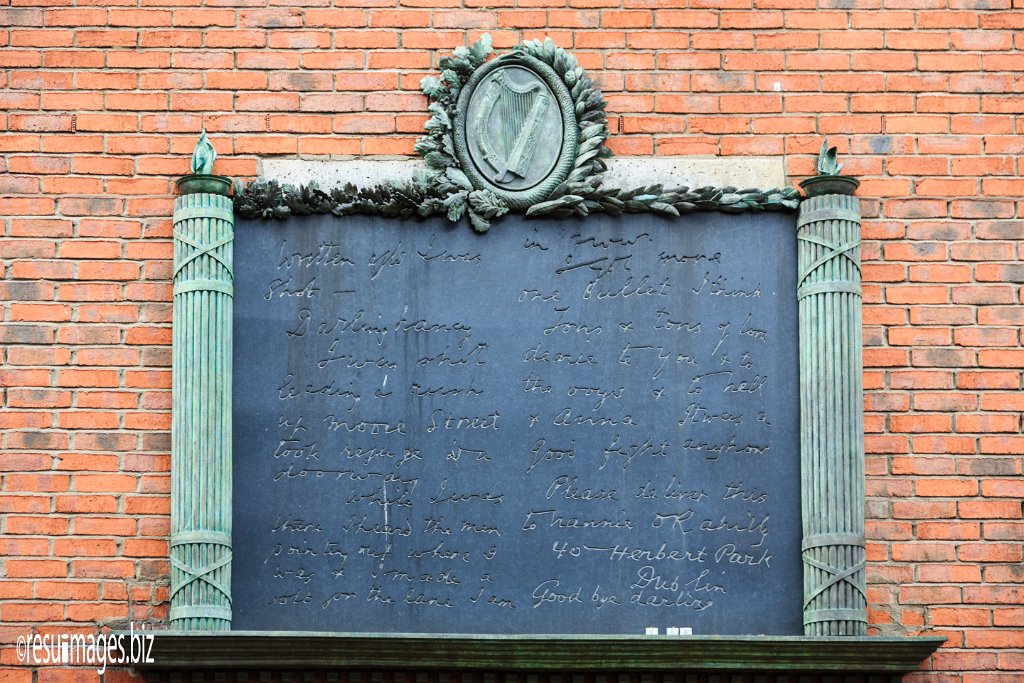 Written after I was
shot —
Darling Nancy
I was shot
leading a rush
up Moore Street
took refuge in a
doorway
While I was
there I heard the men
pointing out where I
was & I made a
bolt for the lane I am
in now.
I got more
one bullet I think.
Tons & tons of love
dearie to you & to
the boys & to Nell
& Anna It was a
good fight anyhow
Please deliver this
to Nannie O'Rahilly
40 Herbert Park
Dublin
Good bye darling
©resulmages.biz